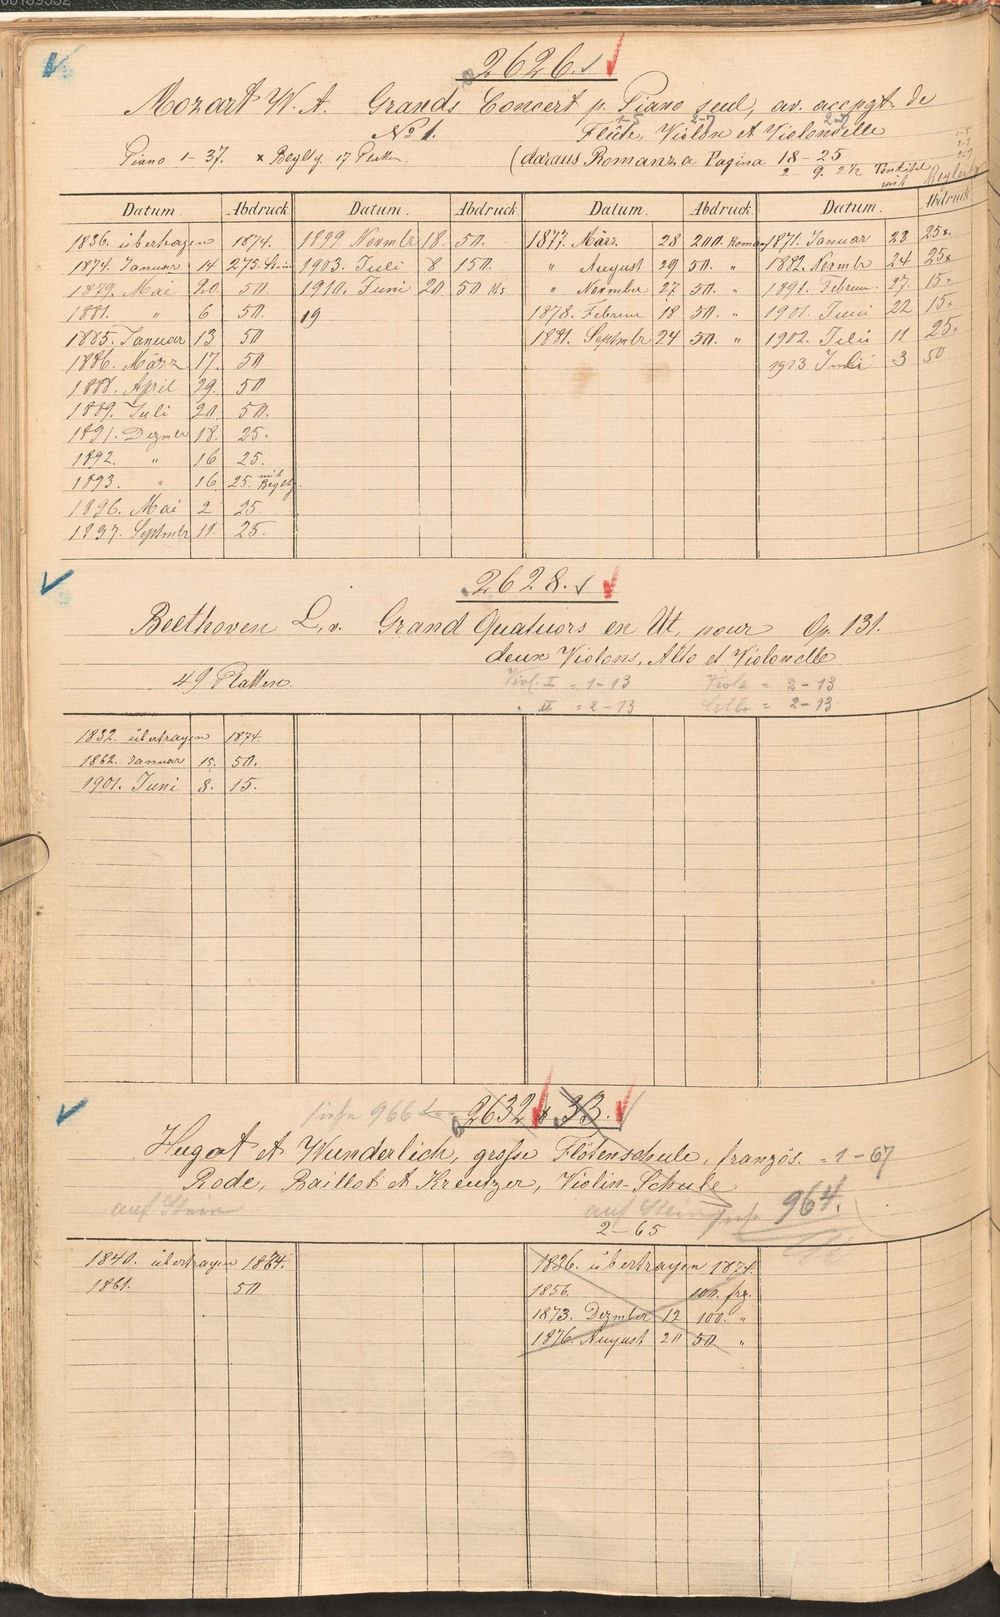 2626.
Mozart W. A. Grands Concert p. Piano seul, av. accpgt. de
No 1. Flûte, Violon et Violoncelle
1-5 2-7 2-7
Piano 1-37. x Begltg 17 Platten. (daraus Romanza Pagina 18-25
2 9. 2 1/2
mit
Datum. Abdruck Datum. Abdruck Datum. Abdruck Datum. Abdruck
1836. übertragen 1874. 1899. Novmbr 18. 50. 1877. März. 28 200. Roman 1871. Januar 23 25x.
1874. Januar 14 275. 1903. Juli 8 150. " August 29 50. " 1882. Novmbr 24 25x
1879. Mai 20. 50. 1910. Juni 20. 50 " Novmber 27 50. " 1891. Februar. 27. 15x
1881. " 6 50. 19 1878. Februar 18 50. " 1901. Juni 22 15x
1885. Januar 13 50 1881. Septmbr 24 50. " 1902. Juli 11 25x
1886. März 17. 50 1913 3 50
1888. April 29. 50
1889. Juli 20. 50.
1891. Dezmbr 18. 25.
1892. " 16 25.
1893. " 16 25. mit Begltg.
1896. Mai 2 25.
1897. Septmbr 11. 25.
2628.
Beethoven L. v. Grand Quatuors en Ut, pour Op. 131.
deux Violons, Alto et Violoncelle
49 Platten. Viol. I = 1-13 Viola = 2-13
" II = 2-13 Cello = 2-13
1832. übertragen 1874.
1862. Januar 15. 50.
1901. Juni 8. 15.
siehe 966 2632 & 33.
Hugot et Wunderlich, grosse Flötenschule, französ. = 1-67
Rode, Baillot et Kreutzer, Violin-Schule
auf Stein auf Stein siehe 964.
2-65
1840. übertragen 1874. 1836. übertragen 1874.
1861. 50 1856. 100. frz.
1873. Dezmber 12 100. "
1876. August 211 50. "